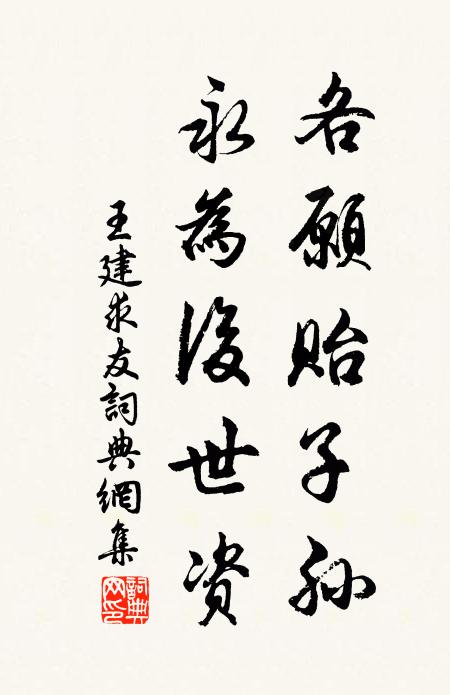 各願貽子孫
永為後世資
王建求友詞典網集
詞典網印